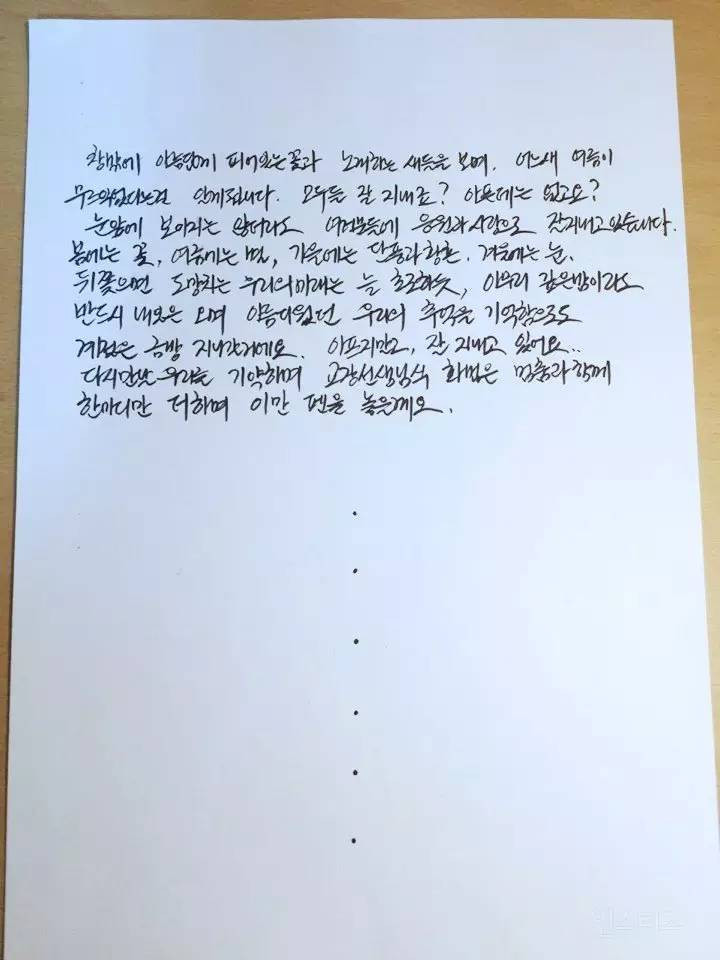 창밖에 아름답게 피어있는 꽃과 노래하는 새들을 보며, 어느새 여름이
무르익었다는걸 알게됩니다. 모두들 잘 지내죠? 아픈데는 없고요?
눈앞에 보이지는 않더라도 여러분들에 응원과 사랑으로 잘지내고 있습니다.
봄에는 꽃, 여름에는 별, 가을에는 단풍과 황혼, 겨울에는 눈.
뒤쫓으면 도망치는 우리의 미래는 늘 초조하듯, 아무리 깊은밤이라도
반드시 내일은 오며 아름다웠던 우리의 추억을 기억함으로도
계절은 금방 지나갈거에요. 아프지말고, 잘 지내고 있어요..
다시만날 우리를 기약하며 선생님식 화법은 멈춤과 함께
한마디만 더하며 이만 펜을 놓을게요.
인스티즈